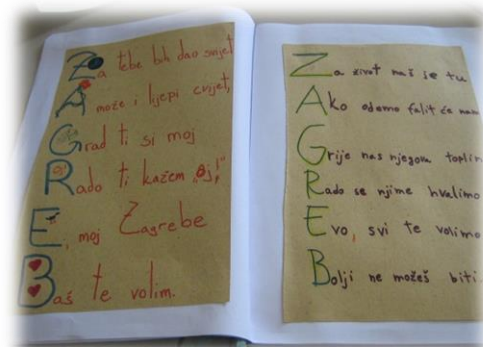 Za tebe bih dao svijet
A može i lijepi cvijet,
Grad ti si moj
Rado ti kažem „Oj!“
E, moj Zagrebe
Baš te volim.
Za život naš se tu
Ako odemo falit će nam
Grije nas njegova toplin
Rado se njime hvalimo
Evo, svi te volimo
Bolji ne možeš biti.